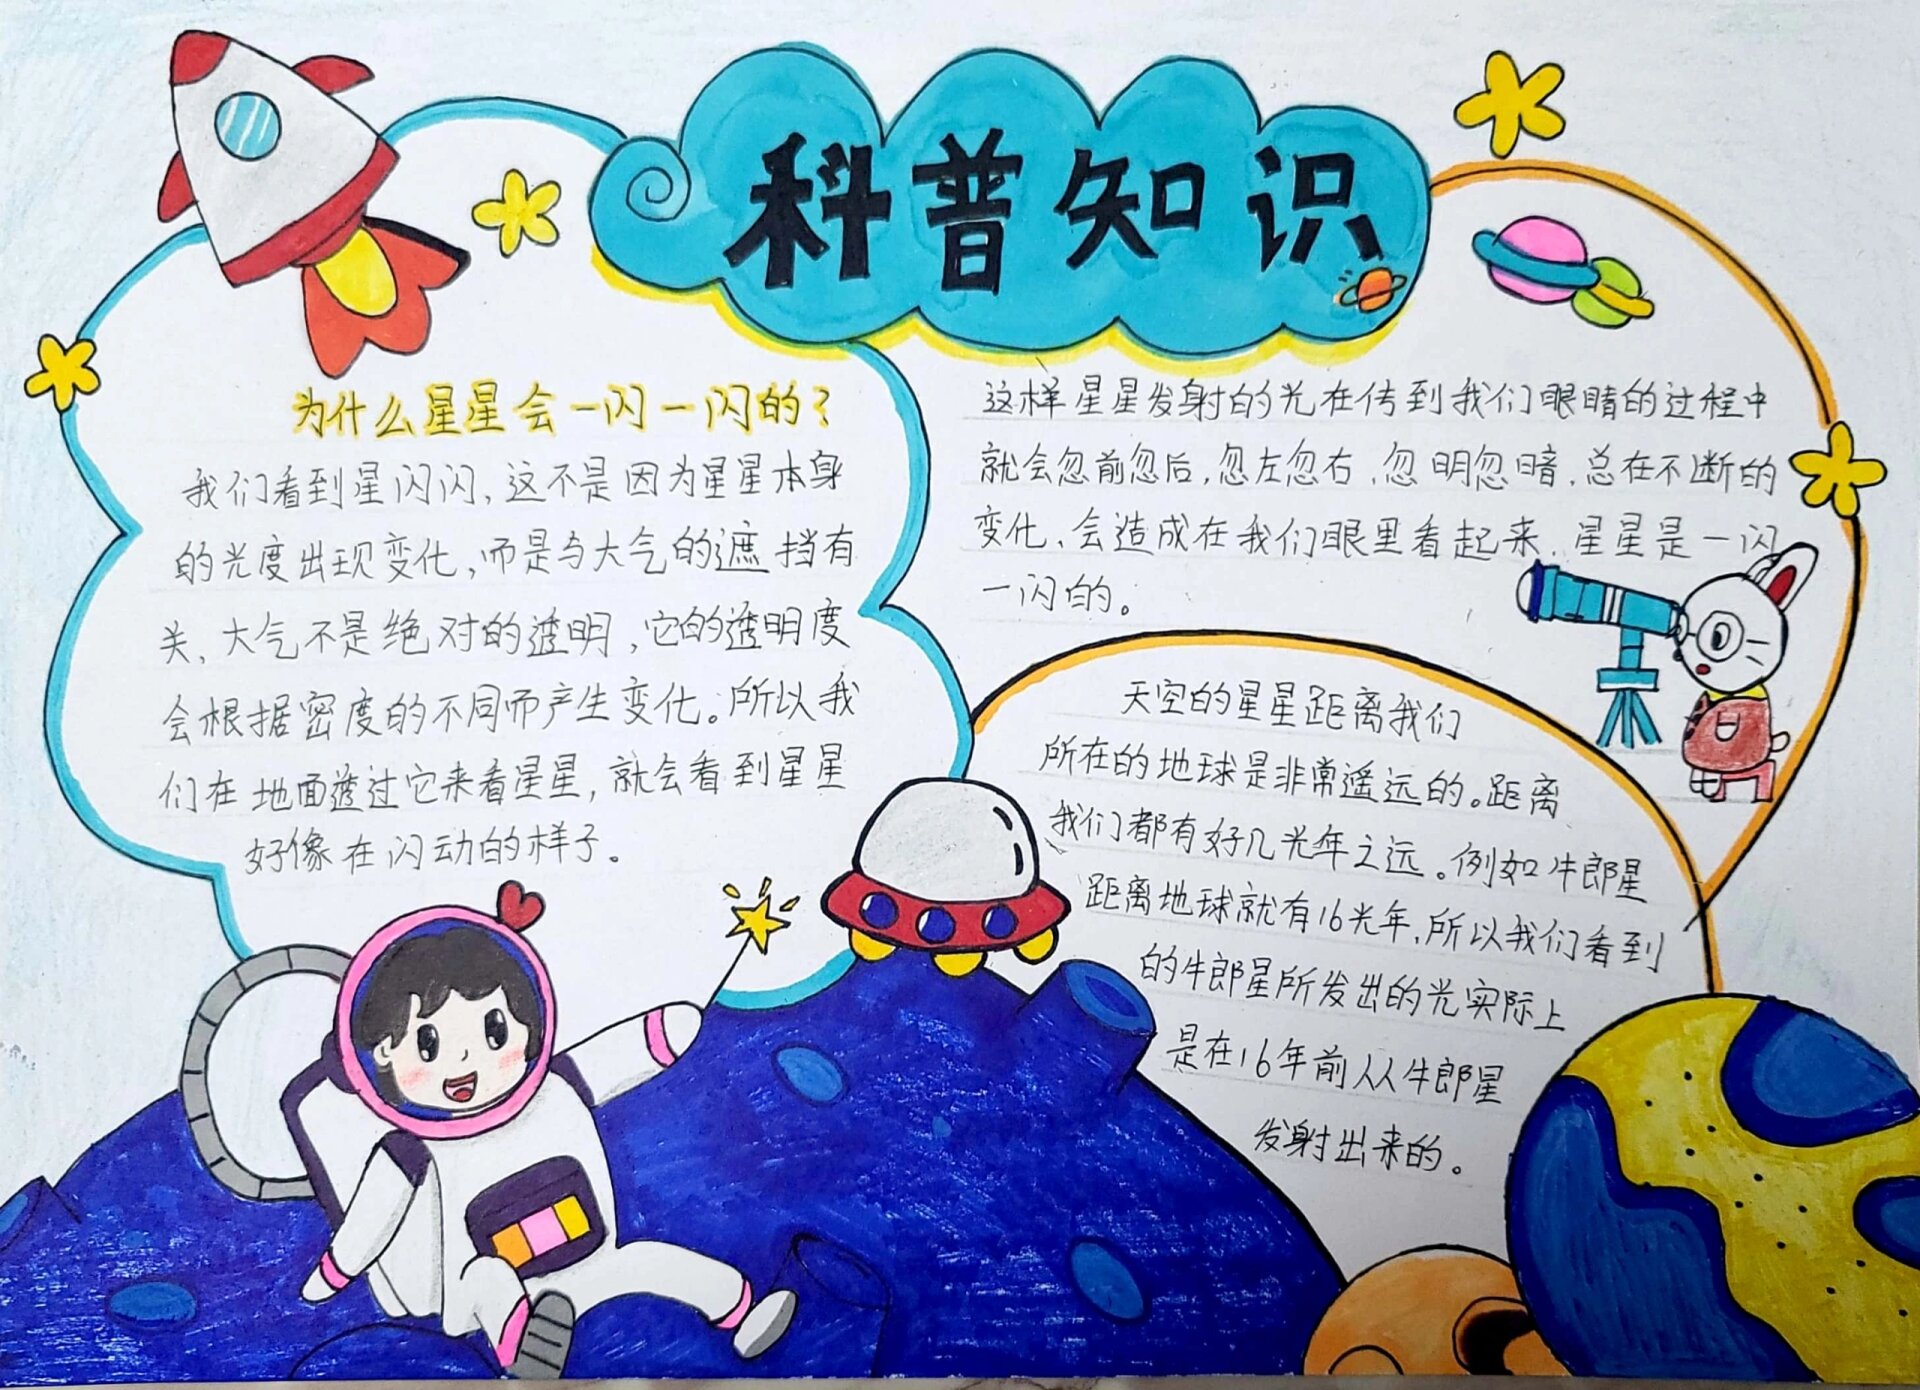 科普知识
为什么星星会一闪一闪的?
我们看到星闪闪,这不是因为星星本身
的光度出现变化,而是与大气的遮挡有
关、大气不是绝对的透明,它的透明度
会根据密度的不同而产生变化。所以我
们在地面透过它来看星星,就会看到星星
好像在闪动的样子。
这样星星发射的光在传到我们眼睛的过程中
就会忽前忽后,忽左忽右、忽明忽暗、总在不断的
变化、会造成在我们眼里看起来、星星是一闪
一闪的。
天空的星星距离我们
所在的地球是非常遥远的。距离
我们都有好几光年之远。例如牛郎星
距离地球就有16光年,所以我们看到
的牛郎星所发出的光实际上
是在16年前从牛郎星
发射出来的。